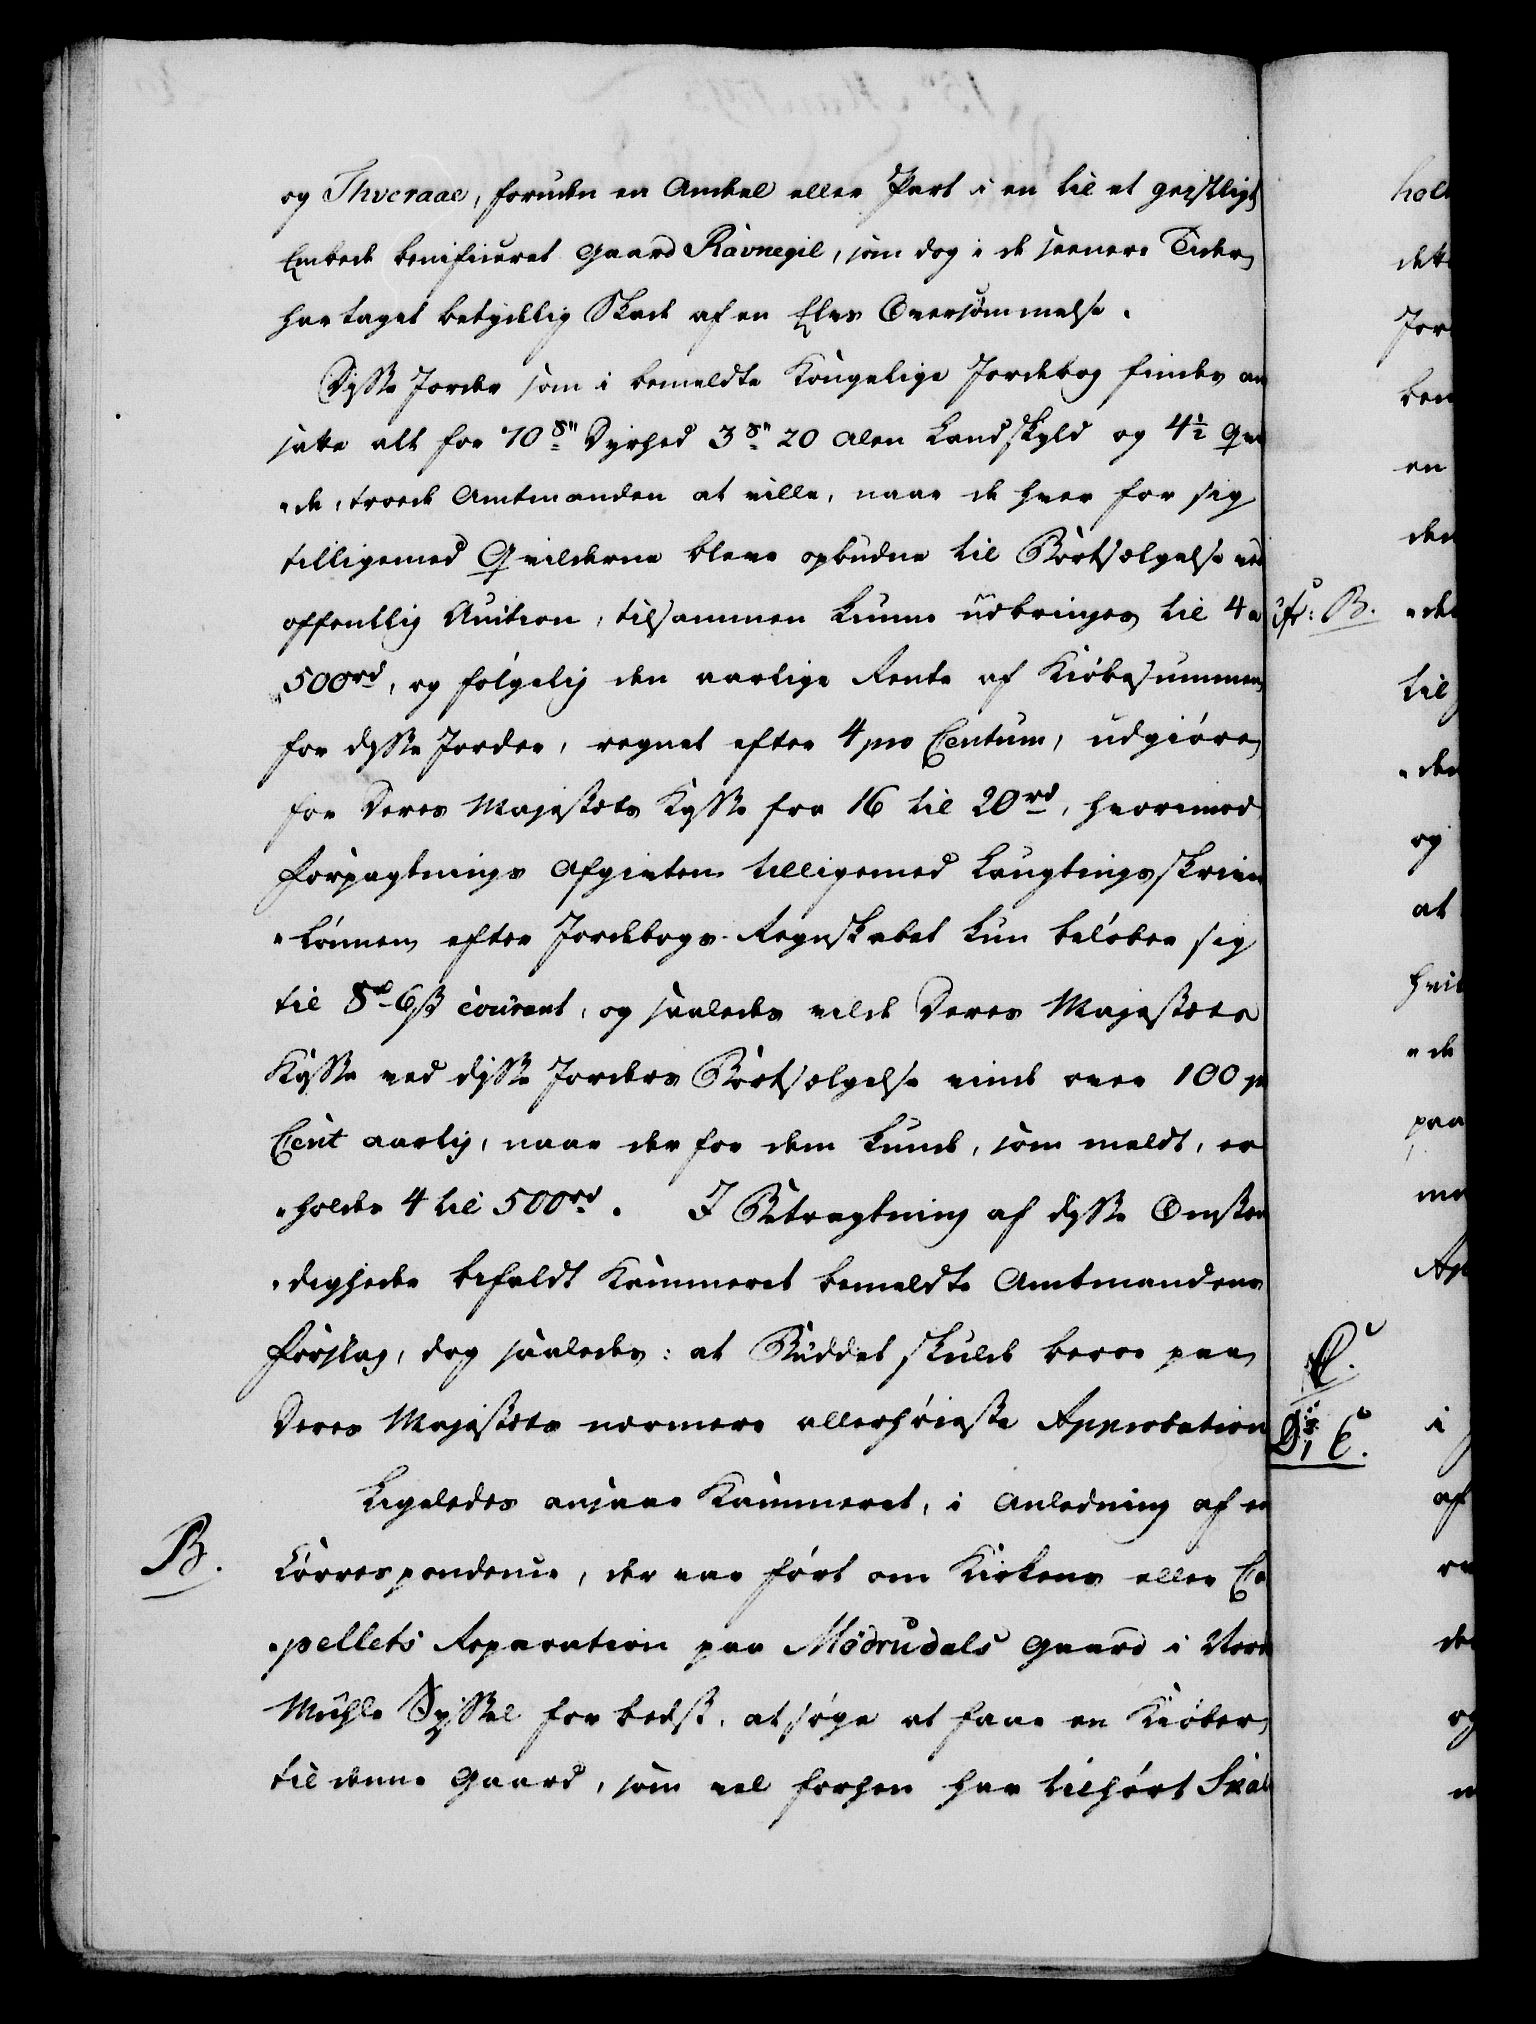 og Thveraae, foruden en Andeel eller Part i en til et geistligt
Embede benificeret Gaard Ravnegil, som dog i de seenere Tider
har taget betydelig Skade af en Elvs Oversvømmelse.
Disse Jorder som i bemeldte Kongelige Jordebog findes an
satte alt for 70 Dyrhed 3 20 Alen Landskyld og 4½ Qvi
"de, troede Amtmanden at ville, naar de hver for sig
tilligemed Qvilderne bleve opbudne til Bortsælgelse ved
offentlig Auction, tilsammen kunne udbringes til 4 a
500rd, og følgelig den aarlige Rente af Kiøbesummen
for disse Jorder, regnet efter 4 pro Centum, udgiøre
for Deres Majestæts Kasse fra 16 til 20rd, hvorimod
Forpagtnings Afgivten tilligemed Laugtingsskriver
"Lønnen efter Jordebogs-Regnskabet kun beløber sig
til 8d 6ß courant, og saaledes vilde Deres Majestæts
Kasse ved disse Jorders Bortsælgelse vinde over 100 pr
Cent aarlig, naar der for dem kunde, som meldt, er
"holdes 4 til 500rd. I Betragtning af disse Omstæn
"digheder befaldt Kammeret bemeldte Amtmandens
Forslag, dog saaledes: at Buddet skulde beroe paa
Deres Majestæts nærmere allerhøieste Approbation
Ligeledes ansaae Kammeret, i Anledning af en
B. Correspondence, der var ført om Kirkens eller Ca
"pellets Reparation paa Mødrudals Gaard i Norder
Muhle Syssel for bedst, at søge at faae en Kiøber
til denne Gaard, som vel forhen har tilhørt Skal